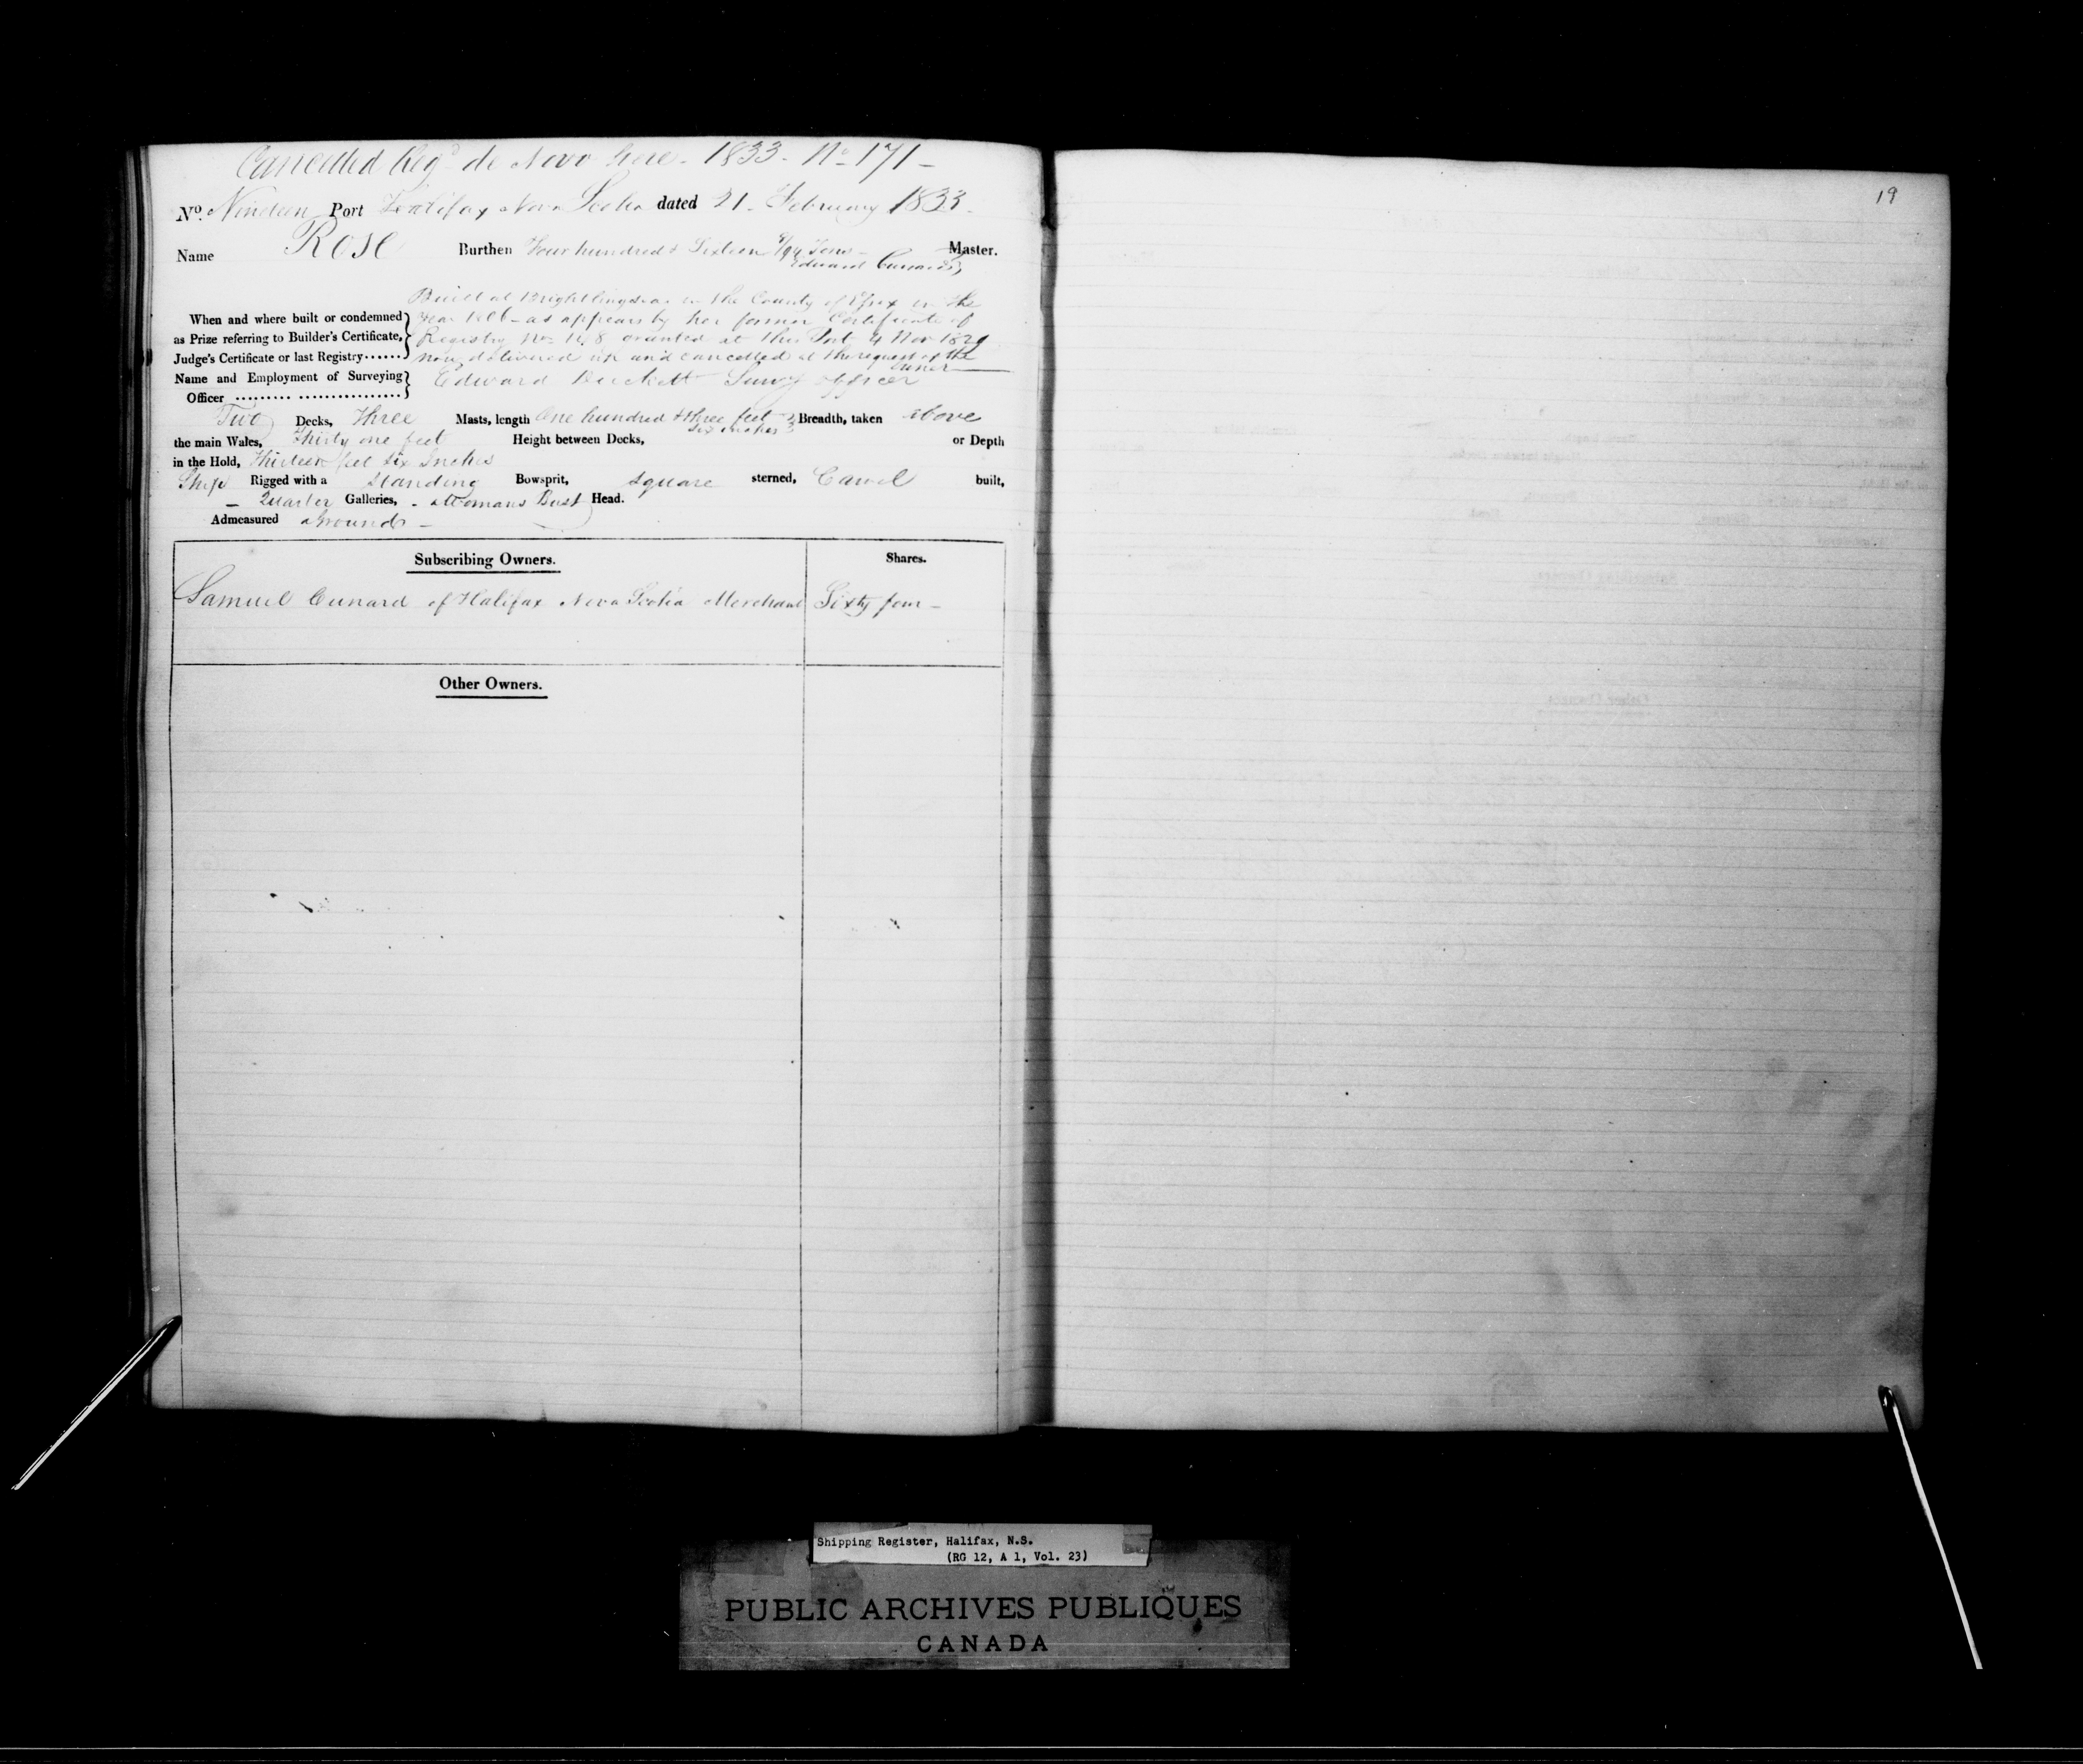 Cancelled Reg.d de Novo here. 1833. No 171 -
No. Nineteen Port Halifax Nova Scotia dated 21. February 1833.
Name Rose Burthen Four hundred & Sixteen /94 Tons - Master.
Edward Cunard
Built at Brightlingsea in the County of Essex in the
When and where built or condemned Year 1806 - as appears by her former Certificate of
as Prize referring to Builder's Certificate, Registry No. granted at this Port 4 Nov 1829
Judge's Certificate or last Registry...... now delivered up and cancelled at the request of the
owner
Name and Employment of Surveying Edward Surv.g officer
Officer ......... ................
Two Decks, Three Masts, length One hundred & three feet Breadth, taken above
six inches
the main Wales, Thirty one feet Height between Decks, or Depth
in the Hold, Thirteen feet six Inches
Ship Rigged with a Standing Bowsprit, square sterned, Carvel built,
- Quarter Galleries, a Womans Bust Head.
Admeasured aGround -
Subscribing Owners. Shares.
Samuel Cunard of Halifax Nova Scotia Merchant Sixty four -
Other Owners.
19
Shipping Register, Halifax, N.S.
(RG 12, A 1, Vol. 23)
PUBLIC ARCHIVES PUBLIQUES
CANADA